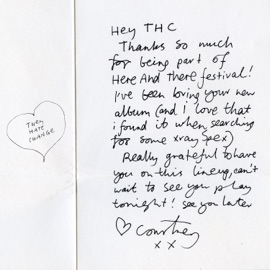 THEY
HATE
CHANGE
Hey THC
Thanks so much
for being part of
Here And There festival!
I've been loving your new
album (and I love that
i found it when searching
for some xray spex)
Really grateful to have
you on this lineup, can't
wait to see you play
tonight! See you later
♡ Courtney
xx